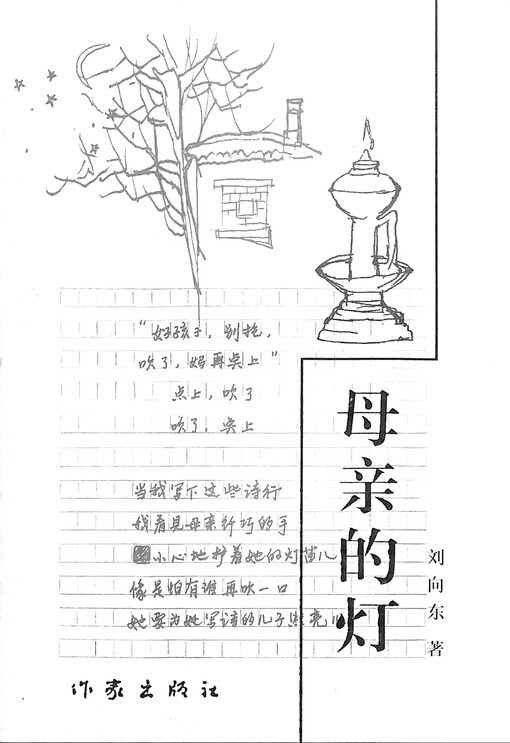 "好孩子，别抢，
吹了，妈再点上"
点上，吹了
吹了，点上
当我写下这些诗行
我看见母亲纤巧的手
小心地护着她的灯苗儿
像是怕有谁再吹一口
她要为她写诗的儿子照亮儿
母亲的灯
刘向东 著
作家出版社